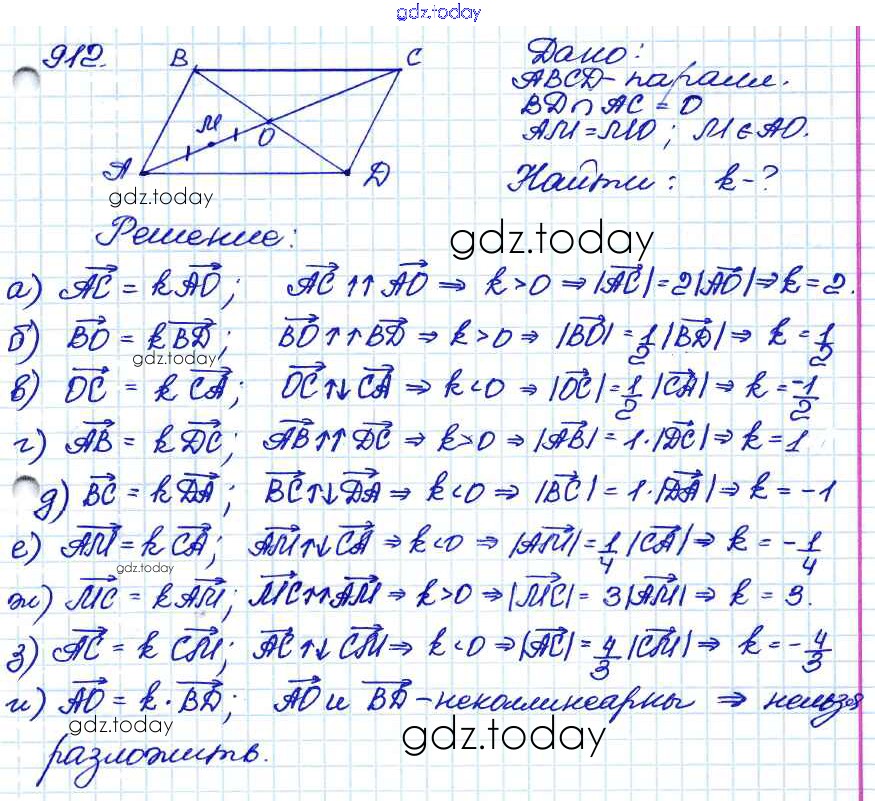 gdz.today
912.
B C
M O
A D
gdz.today
Дано:
ABCD - паралл.
BD ∩ AC = O
AM = MO; M ∈ AO.
Найти: k - ?
Решение:
gdz.today
а) AC→ = k AO→; AC→ ↑↑ AO→ ⇒ k > 0 ⇒ |AC→| = 2|AO→| ⇒ k = 2.
б) BO→ = k BD→; BO→ ↑↑ BD→ ⇒ k > 0 ⇒ |BO→| = 1/2 |BD→| ⇒ k = 1/2
gdz.today
в) OC→ = k CA→; OC→ ↑↓ CA→ ⇒ k < 0 ⇒ |OC→| = 1/2 |CA→| ⇒ k = -1/2
г) AB→ = k DC→; AB→ ↑↑ DC→ ⇒ k > 0 ⇒ |AB→| = 1·|DC→| ⇒ k = 1
д) BC→ = k DA→; BC→ ↑↓ DA→ ⇒ k < 0 ⇒ |BC→| = 1·|DA→| ⇒ k = -1
е) AM→ = k CA→; AM→ ↑↓ CA→ ⇒ k < 0 ⇒ |AM→| = 1/4 |CA→| ⇒ k = -1/4
gdz.today
ж) MC→ = k AM→; MC→ ↑↑ AM→ ⇒ k > 0 ⇒ |MC→| = 3|AM→| ⇒ k = 3.
з) AC→ = k CM→; AC→ ↑↓ CM→ ⇒ k < 0 ⇒ |AC→| = 4/3 |CM→| ⇒ k = -4/3
и) AO→ = k · BD→; AO→ и BD→ - неколлинеарны ⇒ нельзя
gdz.today gdz.today
разложить.